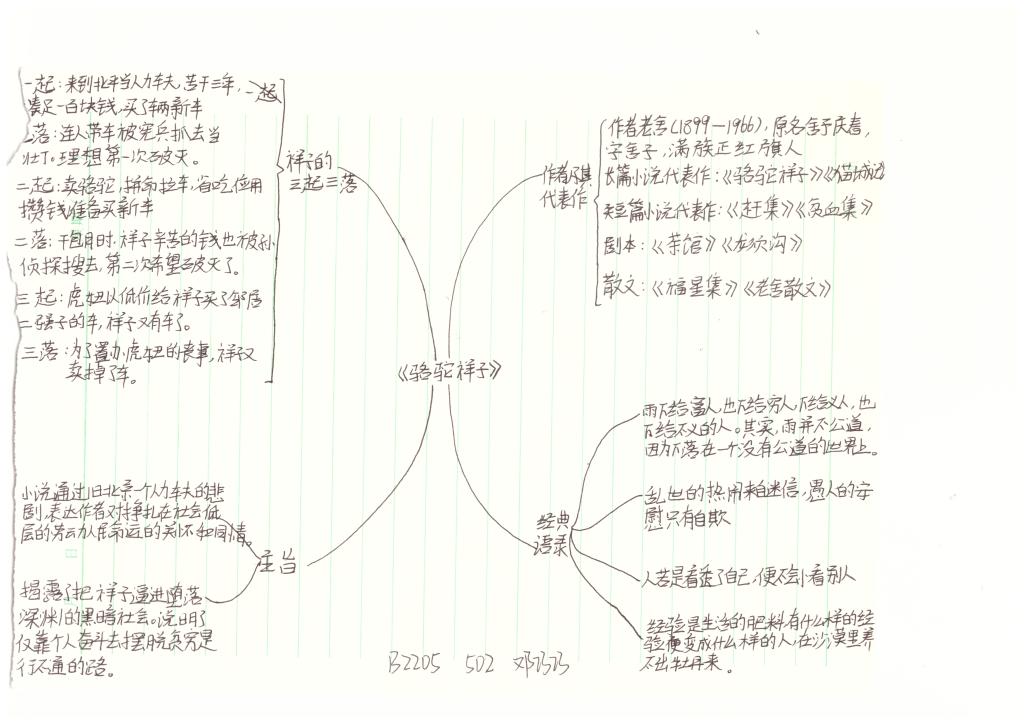 一起：来到北平当人力车夫，苦干三年，
凑足一百块钱，买了辆新车
一起
落：连人带车被宪兵抓去当
壮丁。理想第一次破灭。
二起：卖骆驼，拼命拉车，省吃俭用
攒钱准备买新车
二落：干包月时，祥子辛苦的钱也被孙
侦探搜去，第二次希望破灭了。
三起：虎妞以低价给祥子买了邻居
二强子的车，祥子又有车了。
三落：为了置办虎妞的丧事，祥子又
卖掉了车。
祥子的
三起三落
作者及其
代表作
作者老舍(1899—1966)，原名舒庆春，
字舍予，满族正红旗人
长篇小说代表作：《骆驼祥子》《猫城记》
短篇小说代表作：《赶集》《贫血集》
剧本：《茶馆》《龙须沟》
散文：《福星集》《老舍散文》
《骆驼祥子》
小说通过旧北京一个人力车夫的悲
剧，表达作者对挣扎在社会低
层的劳动人民命运的关怀和同情。
主旨
揭露了把祥子逼进堕落
深渊的黑暗社会。说明了
仅靠个人奋斗去摆脱贫穷是
行不通的路。
经典
语录
雨下给富人，也下给穷人，下给义人，也
下给不义的人。其实，雨并不公道，
因为下落在一个没有公道的世界上。
乱世的热用来自迷信，愚人的安
慰只有自欺
人若是看透了自己，便不会小看别人
经验是生活的肥料，有什么样的经
验便变成什么样的人，在沙漠里养
不出牡丹来。
B2205 502 邓巧巧